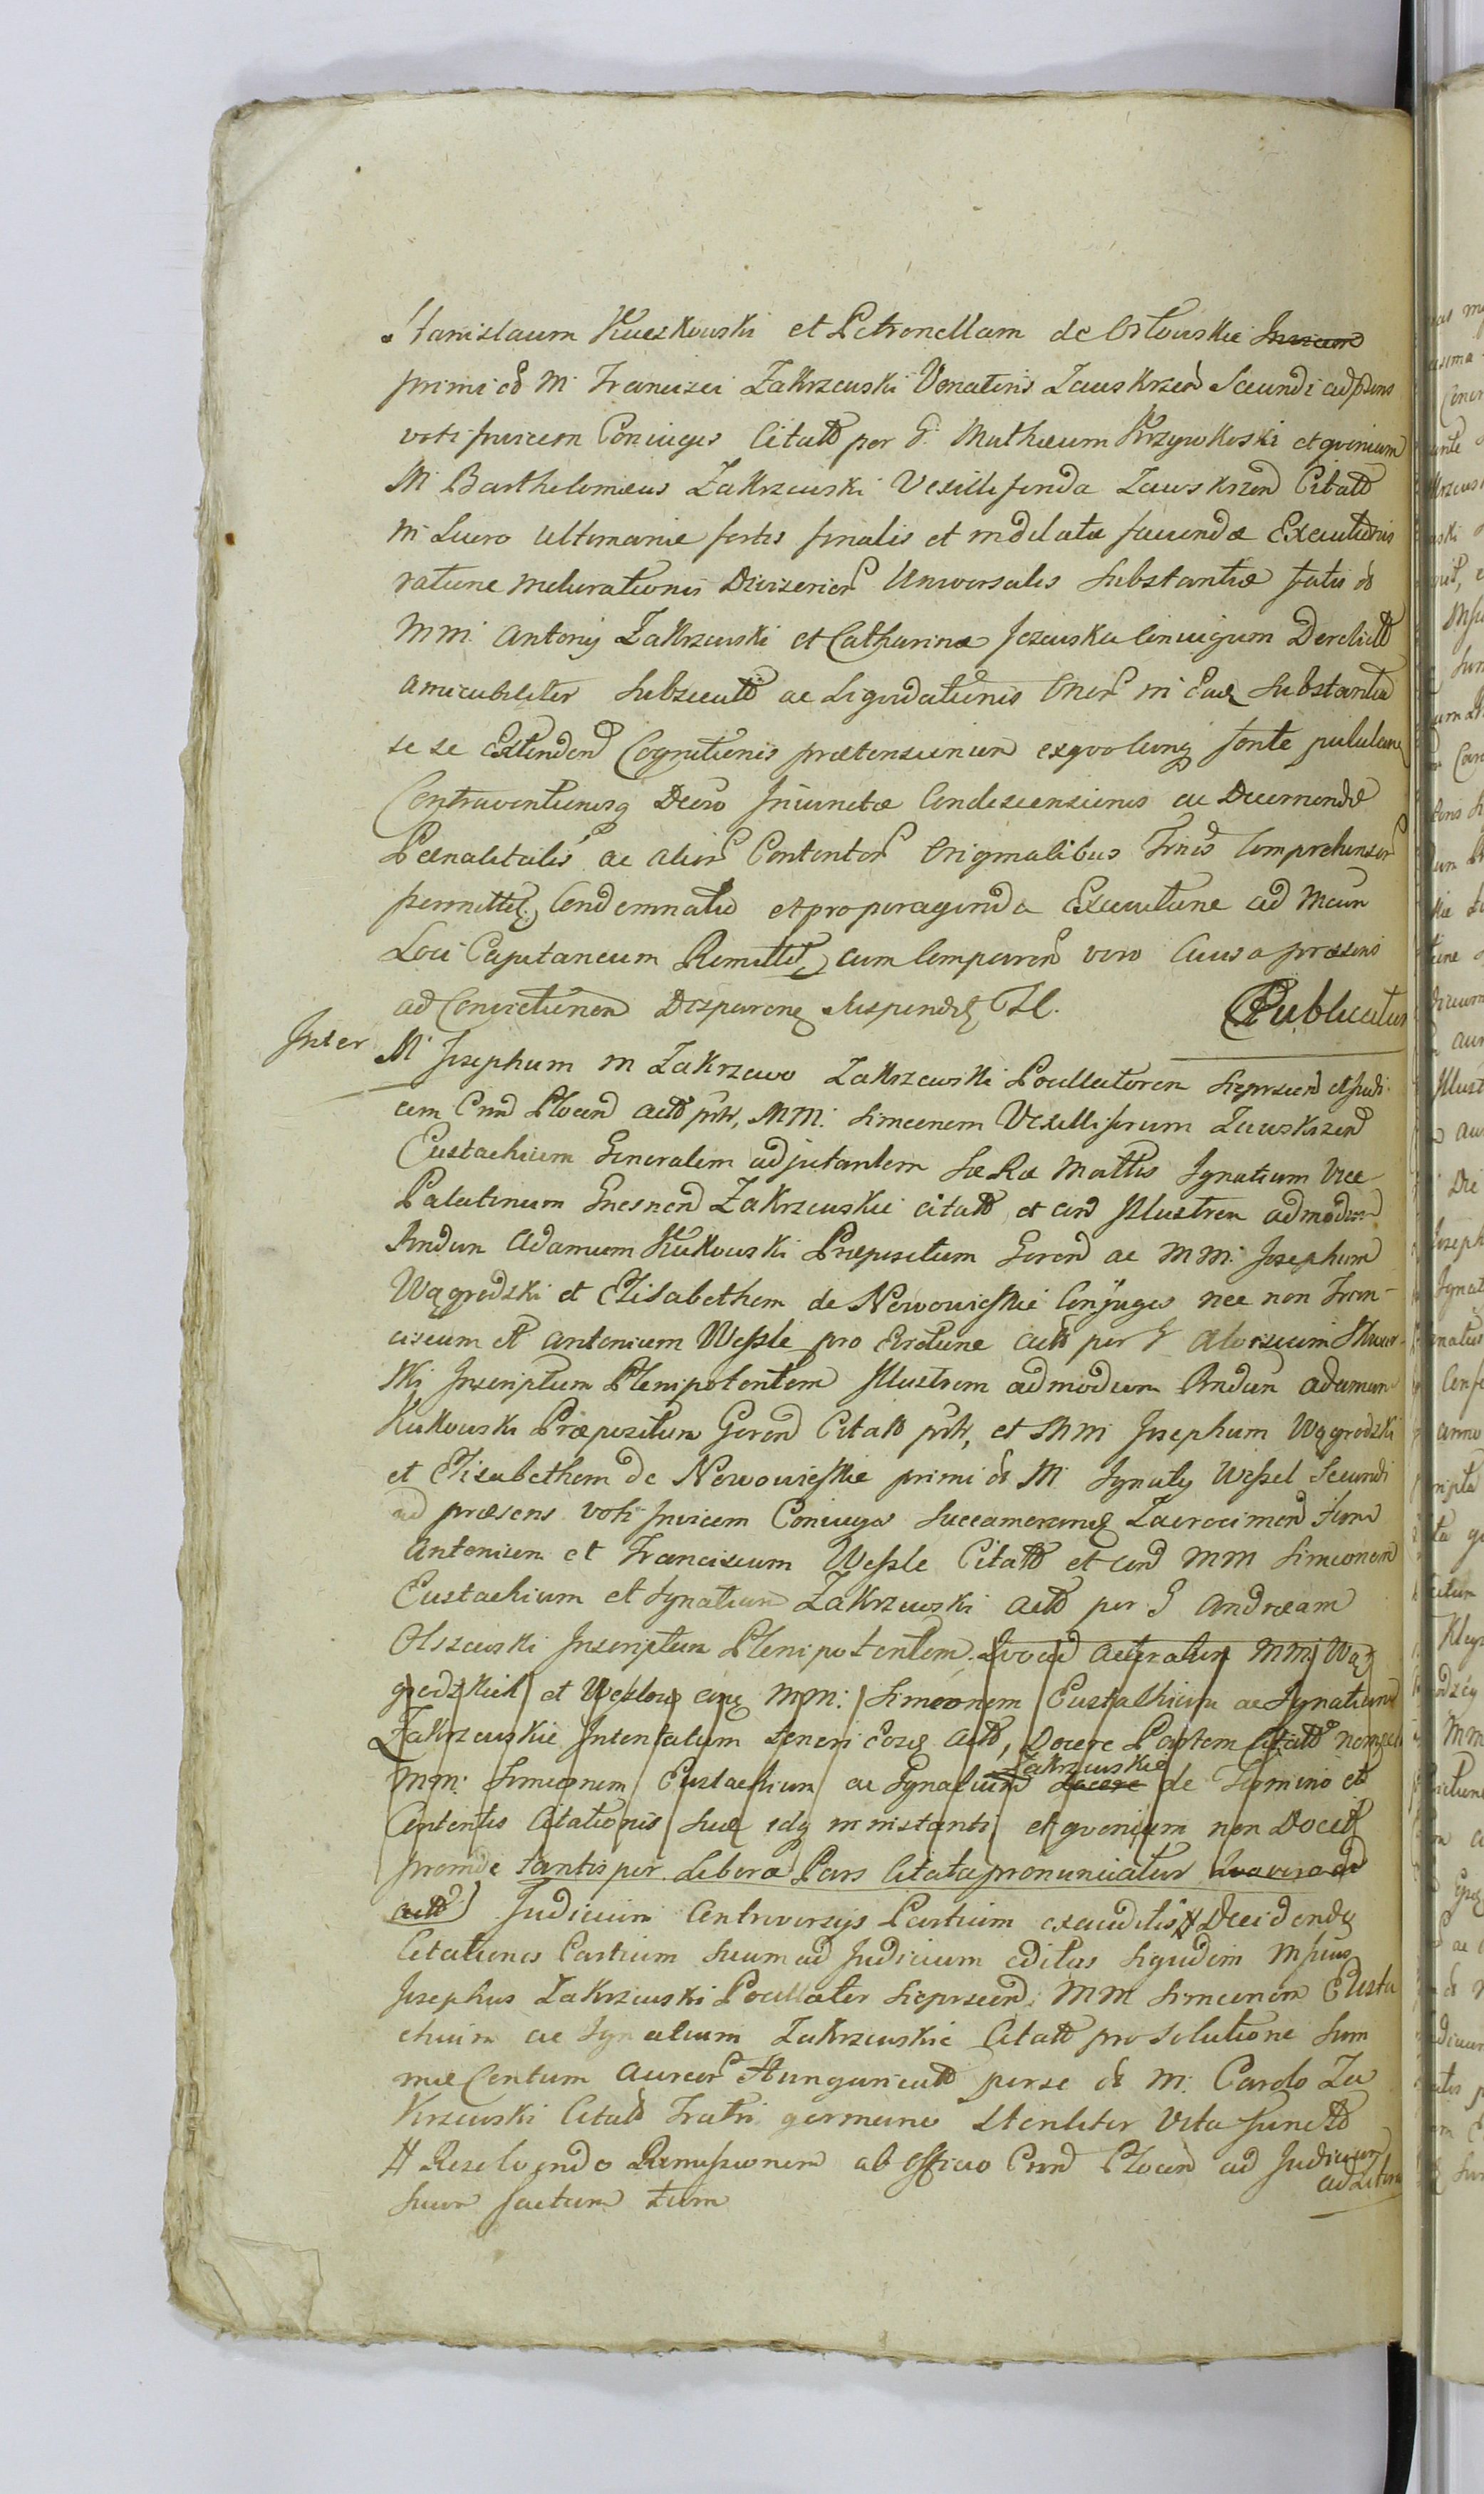 Stanislaum Kuczkowski et Petronellam de Orłowskie Invicem
primi olim M. Francisci Zakrzewski Venatoris Zawskrzen Secundi ad præns
voti Invicem Coniuges Citatt per G. Mathæum Krzywkoski et quoniam
M. Bartholomæus Zakrzewski Vexilliferida Zawskrzen Citatt
in Lucro Ultimariæ sortis finalis et indilatæ faciendæ Executionis
ratione meliorationis Universalis Substantiæ fatis olim
MM. Antonij Zakrzewski et Catharinæ Jezewska Coniugum Derelictt
amicabiliter Subsecutt ac Liquidationis Oner in Eadem Substantia
se se Extenden Cognitionis prætensionum exquo eorumq fonte pululan
Contraventionisq Decreto Iniunctæ Condescensionis ac Decernendæ
Pœnalitatis ac alior Contentor Originalibus Comprehensor
permittit, Condemnatio et pro peragenda Executione ad Meum
Loci Capitaneum Remittit, cum Comparen vero Causa præsens
ad Convictionem Disparen Suspendit
Publicatur
Inter M. Josephum in Zakrzewo Zakrzewski Pocillatorem Sieprscen et Judi
cem Plocen actt MM. Simeonem Vexilliferum Zawskrzen
Eustachium Generalem adjutantem Sæ Ræ Mattis Ignatium Vice
Palatinum Gnesnen Zakrzewskie citatt et Illustrem admodum
Rndum Adamum Kukowski Præpositum Goren ac MM. Josephum
Wągrodzki et Elisabetham de Nowowieskie Conjuges nec non Fran-
ciscum et Antonium Wessle pro Evictione citt per G
Inscriptum Plenipotentem Illustrem admodum Rndum Adamum
Kukowski Præpositum Goren Citatt et MM Josephum Wągrodzki
et Elisabetham de Nowowieskie primi olim M. Ignatij Wessel Secundi
ad præsens voti Invicem Coniuges Succamerarios Zacrocimen
Antonium et Franciscum Wessle Citatt et MM Simeonem
Eustachium et Ignatium Zakrzewski actt per G Andream
Olszewski Inscriptum Plenipotentem. Quoad MM. Wą
grodzkich et Wesslow MM: Simeonem Eustachium ac Ignatium
Zakrzewskie Intentatum teneri actt, Docere Partem Citatt nempe
MM: Simeonem Eustachium ac Ignatium Zakrzewskie docere de Termino et
Contentis Citationis suæ idq in instanti et quoniam non Docet
proinde tantisper Libera Pars Citata pronunciatur
actt) Judicium Controversijs Partium exauditis # Decidendo
Citationes Partium suum ad Judicium editas Siquidem
Josephus Zakrzewski Pocillator Sieprscen MM Simeonem Eusta
chium ac Ignatium Zakrzewskie Citatt pro Solutione Sum
mæ Centum Aureor Hungaricatt per se olim M. Carolo Za
krzewski Citatt Fratri germano Vita functt
# Resolvendo Remissionem ab officio Plocen ad Judicium
Suum factam